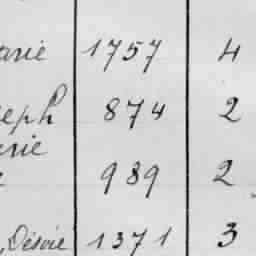 arie 1757 4
eph 874 2
erie
989 2
Désvie 1371 3